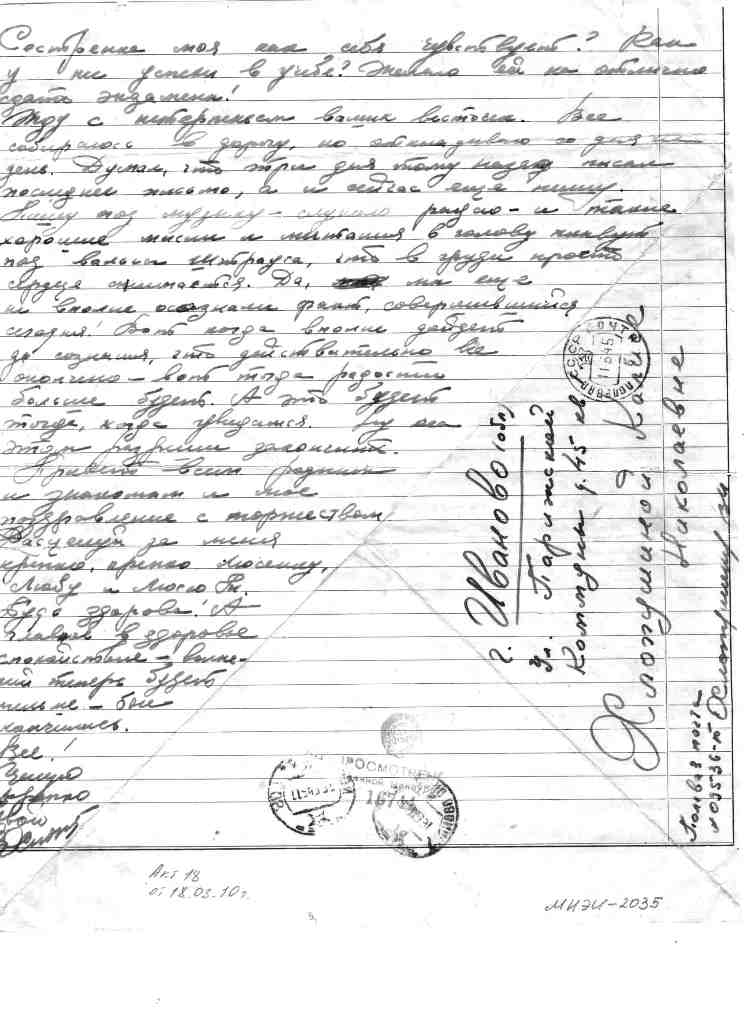 Сестренка моя как себя чувствует? Как
у ни успехи в учебе? Желаю ей на отлично
сдать экзамены!
Жду с нетерпеньем ваших весточек. Все
собиралась в дорогу, но откладываю со дня на
день. Думал, что три дня тому назад писал
последнее письмо, а и сейчас еще пишу.
Пишу под музыку - слушаю радио - и такие
хорошие мысли и мечтания в голову
под вальсы Штрауса, что в груди просто
сердце сжимается. Да, мы еще
не вполне осознали факт, совершившийся
сегодня! Вот когда вполне дойдет
до сознания, что действительно все
окончено - вот тогда радости
больше будет. А это будет
тогда, когда увидимся. Ну на
этом разреши закончить.
Привет всем родным
и знакомым и мое
поздравление с торжеством
Расцелуй за меня
крепко, крепко
Любу и Люсю
Будь здорова! А
главное в здоровье
спокойствие -
теперь будет
- бои
кончились.
Все!
Целую
крепко
твой
г. Иваново (обл)
Ул. Парижской
Коммуны д. 45 кв
Хлопушиной Калерие
Николаевне
Полевая почта
№ 03536-т
ПРОСМОТРЕНО
Акт 18
от 18.03.10 г.
МИЭИ-2035